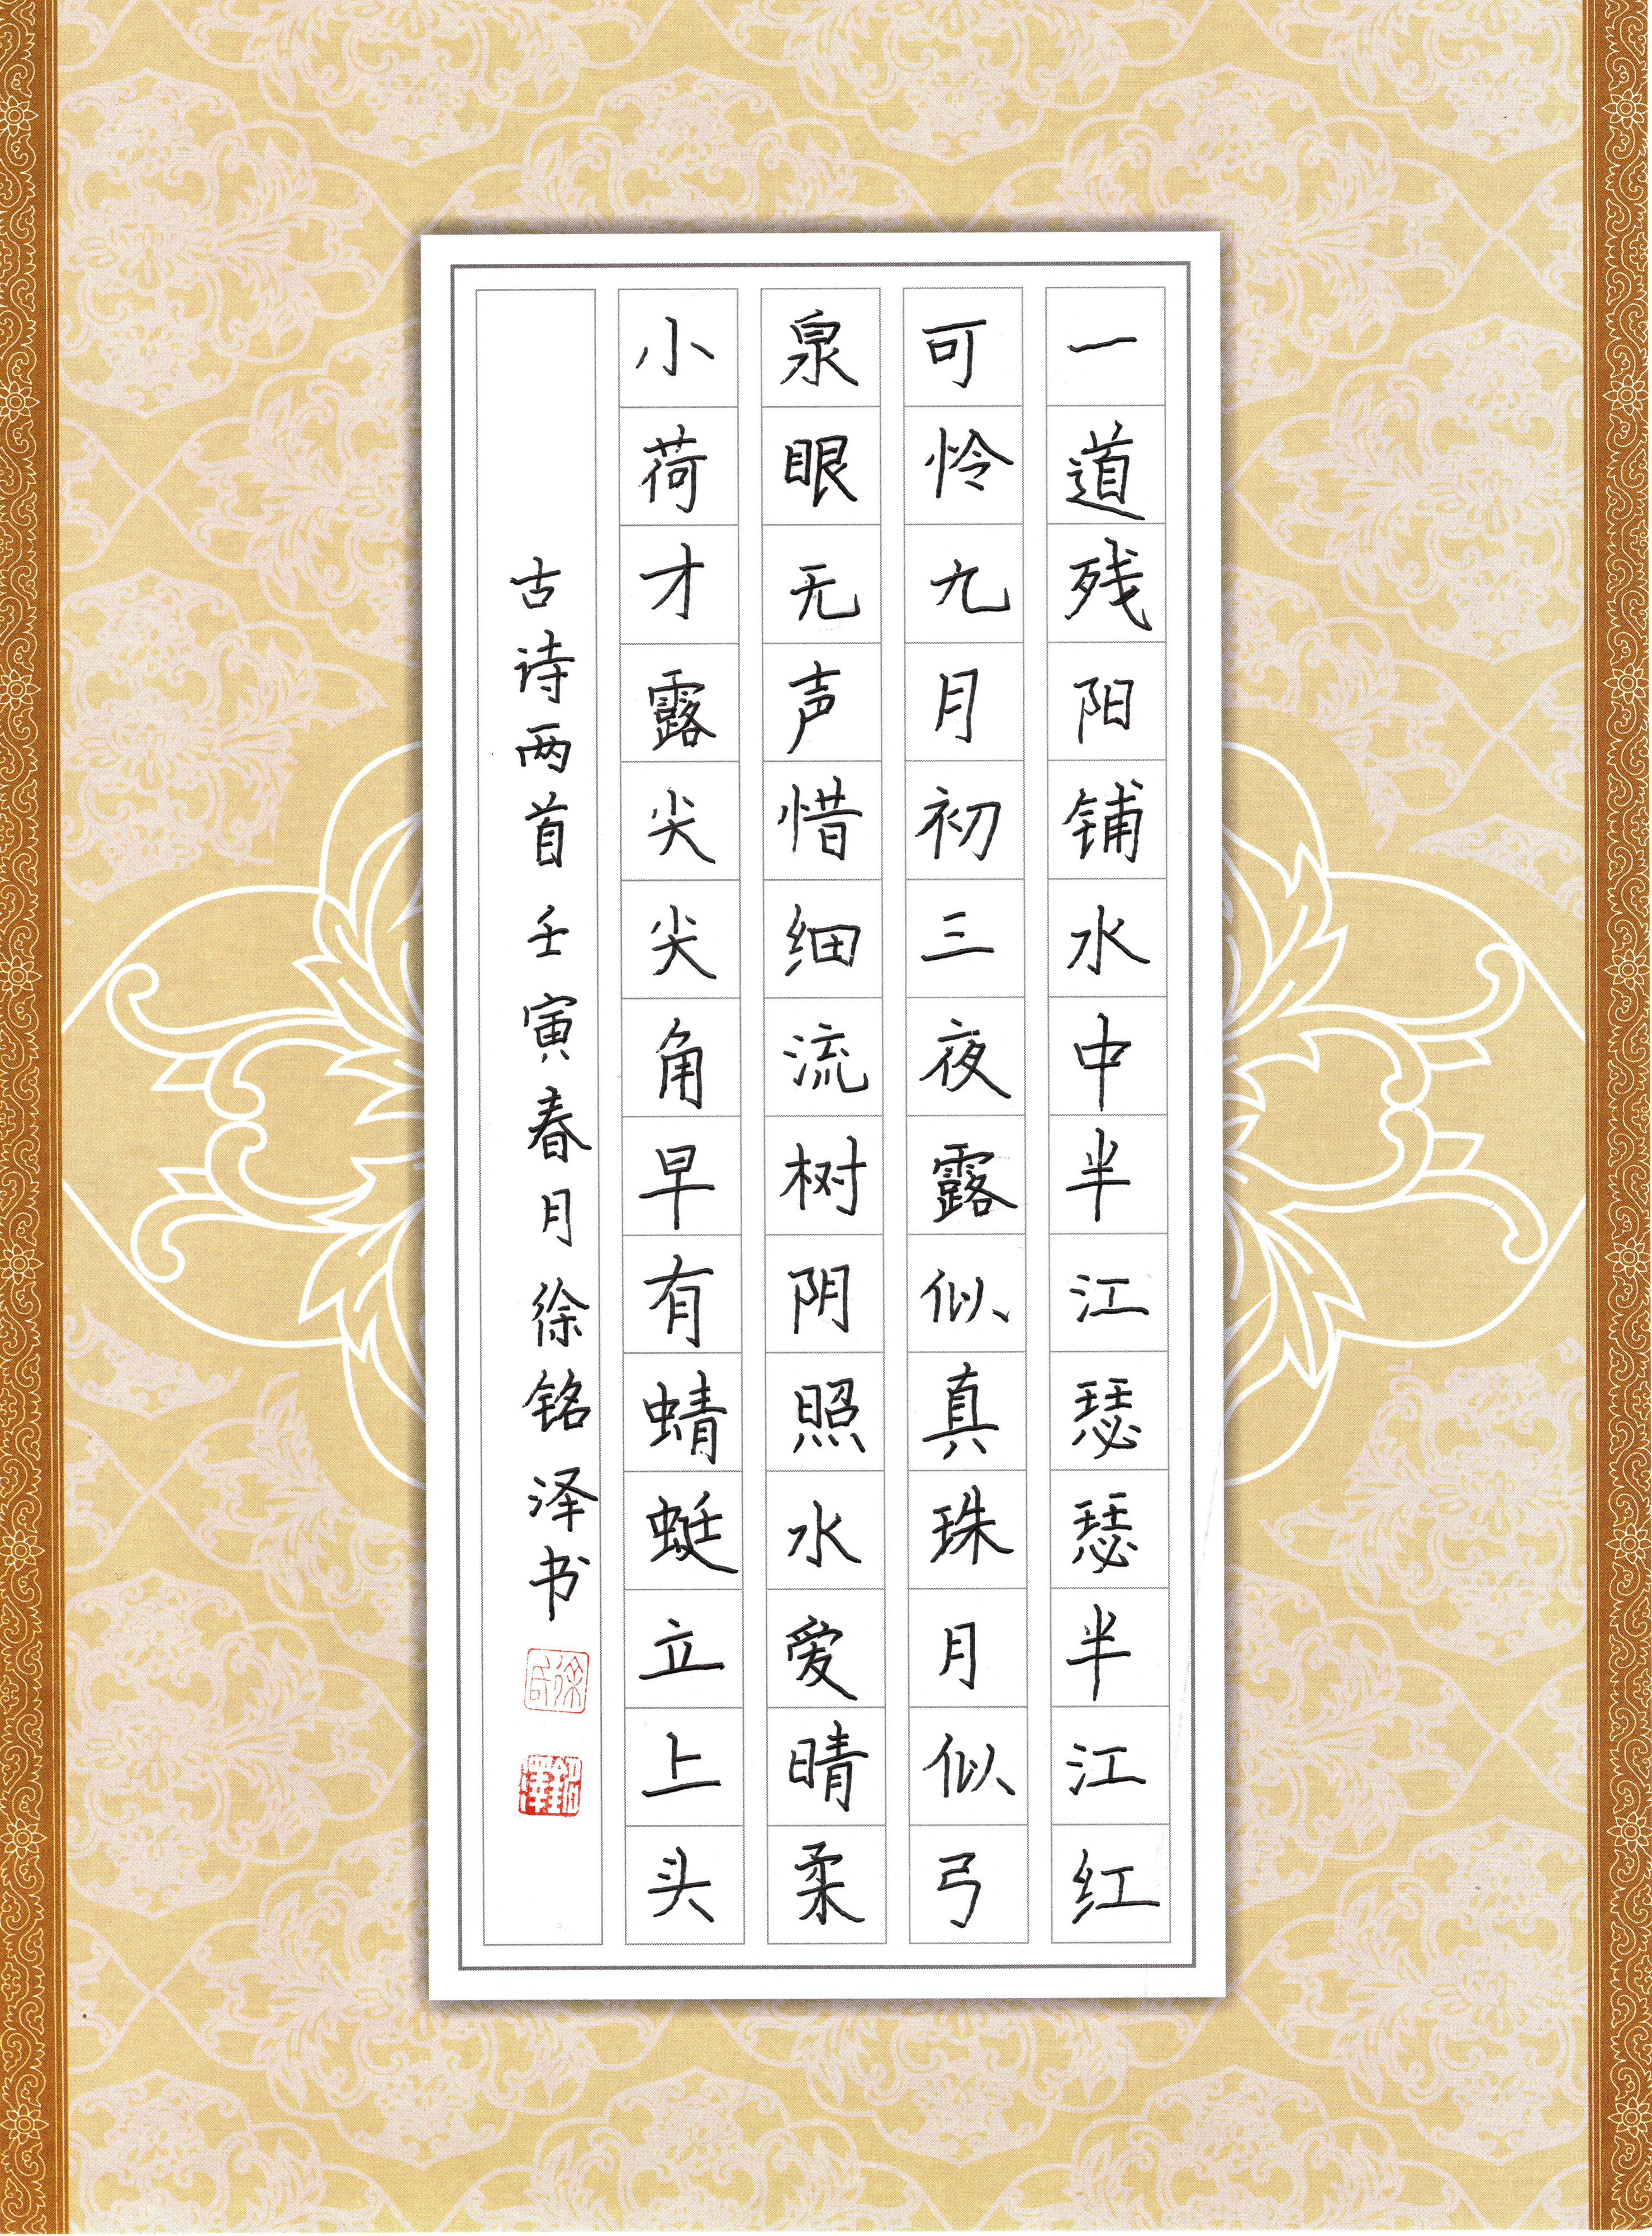 一道残阳铺水中半江瑟瑟半江红
可怜九月初三夜露似真珠月似弓
泉眼无声惜细流树阴照水爱晴柔
小荷才露尖尖角早有蜻蜓立上头
古诗两首壬寅春月徐铭泽书
徐氏
銘澤